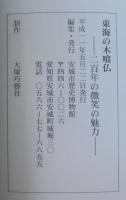 東海の木喰仏
――二百年の微笑の魅力――
平成一一年五月二二日発行
編集・発行
安城市歴史博物館
〒四四六-〇〇二六
愛知県安城市安城町城堀三〇
電話 〇五六六-七七-六六五五
制作
大塚巧藝社